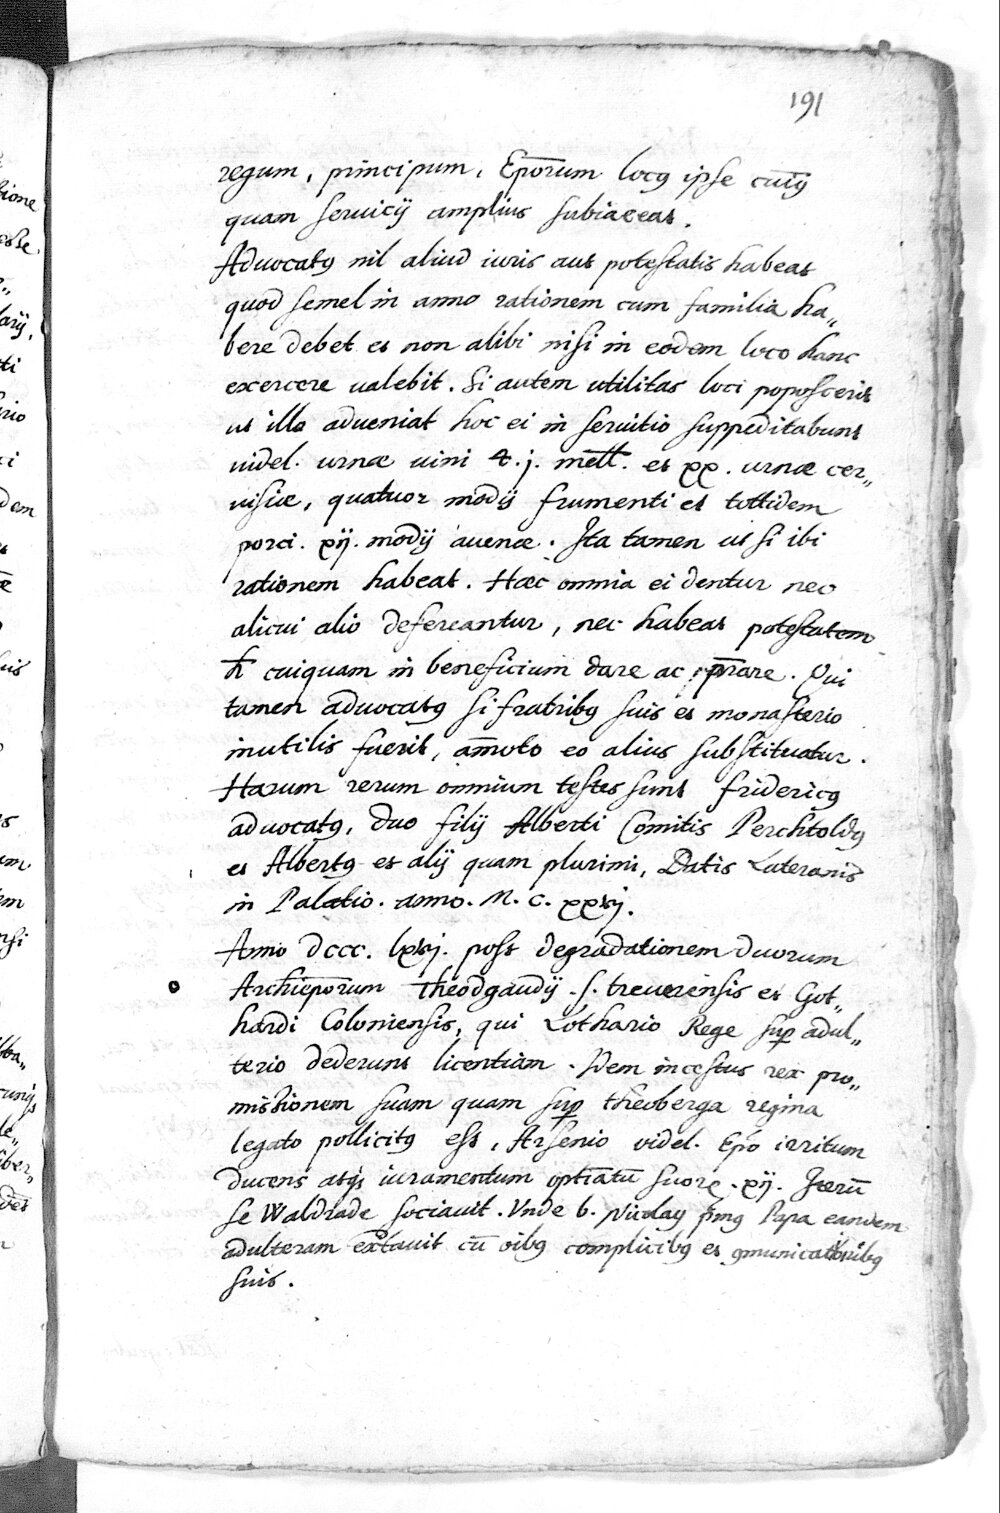 191
regum, principum, Epōrum locꝯ ipse cuiꝯ
quam seruicij amplius subiaceat.
Aduocatꝯ nil aliud iuris aut potestatis habeat
quod semel in anno rationem cum familia ha„
bere debet et non alibi nisi in eodem loco hanc
excercere ualebit. Si autem utilitas loci poposcerit
ut illo adueniat hoc ei in seruitio suppeditabunt
uidel. urnæ uini 4. j. mell. et xx. urnæ cer„
uisiæ, quatuor modij frumenti et tottidem
porci. xij. modij auenæ. Ita tamen ut si ibi
rationem habeat. Hæc omnia ei dentur nec
alicui alio defereantur, nec habeat potestatem
h̄ cuiquam in beneficium dare ac p̄rare. Qui
tamen aduocatꝯ si fratribꝯ suis et monasterio
inutilis fuerit, am̄oto eo alius substituatur.
Harum rerum omnium testes sunt fridericꝯ
aduocatꝯ, duo filij Alberti Comitis Perchtoldꝯ
et Albertꝯ et alij quam plurimi, Datis Lateranis
in Palatio. anno. M. C. xxvj.
Anno dccc. lxvj. post degradationem duorum
Archiep̄orum Theodgaudij .s. treuerensis et Got„
hardi Coloniensis, qui Lothario Rege sup adul„
terio dederunt licentiam. Idem incestus rex pro„
missionem suam quam sup theoberga regina
legato pollicitꝯ est, Arsenio videl. Ep̄o irritum
ducens atqꝫ iuramentum optiatū suorꝝ .xij. Iterū
se Waldrade sociauit. Vnde b. Nicolaꝯ p̄mꝯ Papa eandem
adulteram exc̄tauit cū oibꝯ complicibꝯ et ꝯmunicatoribꝯ
suis.